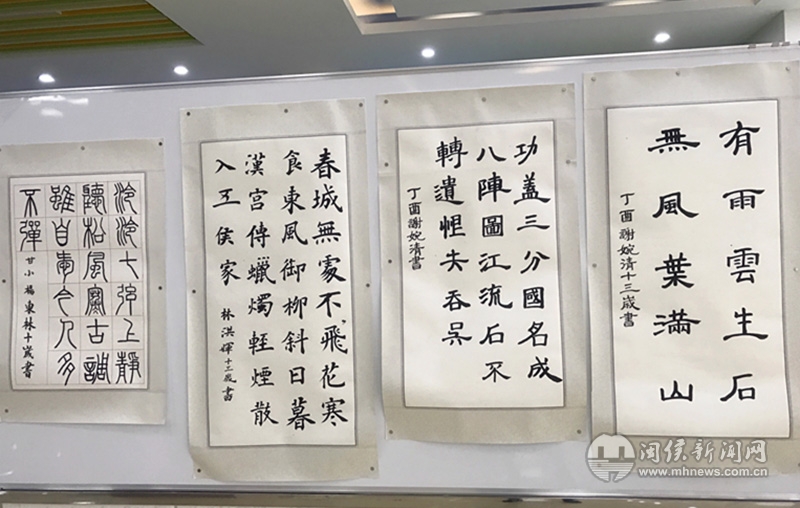 有雨雲生石
無風葉滿山
丁酉謝婉清十三歲書
功盖三分國名成
八陣圖江流石不
轉遺恨失吞吴
丁酉謝婉清書
春城無處不飛花寒
食東風御柳斜日暮
漢宫傳蠟燭輕煙散
入五侯家
林洪煇十二歲書
泠泠七弦上靜
聽松風寒古調
雖自愛今人多
不彈
甘小楊東林十歲書
闽侯新闻网
www.mhnews.com.cn